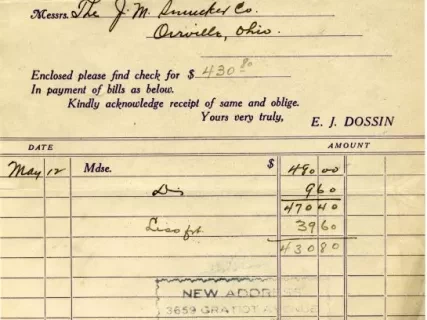 Messrs. The J. M. Smucker Co.
Orrville, Ohio.
Enclosed please find check for $ 430 80
In payment of bills as below.
Kindly acknowledge receipt of same and oblige.
Yours very truly,
E. J. DOSSIN
DATE AMOUNT
May 12 Mdse. $ 480 00
Dis 9 60
470 40
Less frt. 39 60
430 80
NEW ADDRESS
3659 GRATIOT AVENUE